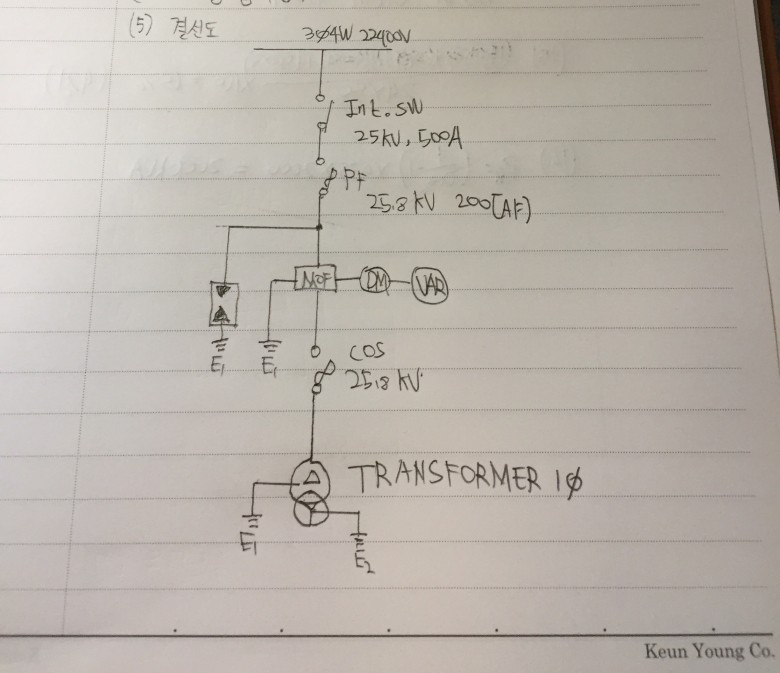 (5) 결선도
3φ4W 22900V
Int.SW
25kV, 500A
PF
25.8kV 200[AF]
MOF
DM
VAR
E₁
E₁
COS
25.8kV
Δ
TRANSFORMER 1φ
E₁
E₂
Keun Young Co.